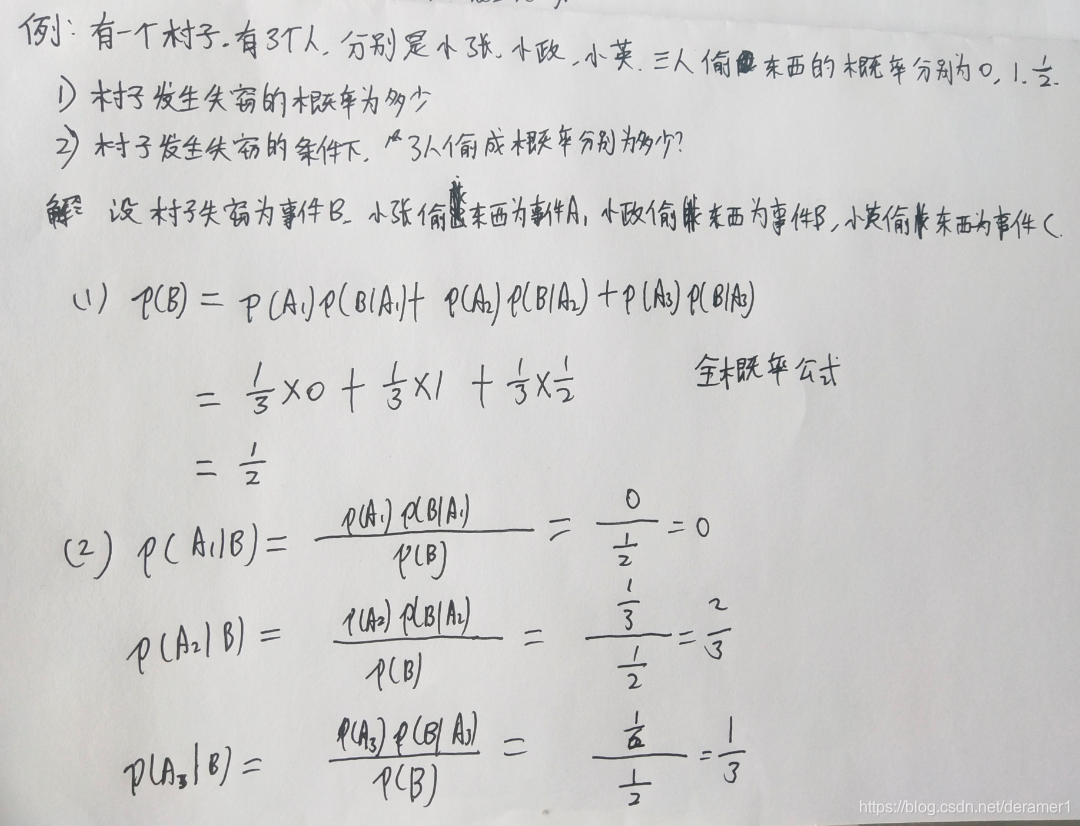 例: 有一个村子.有3个人, 分别是小张, 小政, 小英. 三人偷东西的概率分别为0, 1, 1/2.
1) 村子发生失窃的概率为多少
2) 村子发生失窃的条件下, 3人偷成概率分别为多少?
解 设村子失窃为事件B. 小张偷东西为事件A, 小政偷东西为事件B, 小英偷东西为事件C.
(1) P(B) = P(A₁)P(B|A₁)+ P(A₂)P(B|A₂)+P(A₃)P(B|A₃)
= 1/3×0 + 1/3×1 + 1/3×1/2 全概率公式
= 1/2
(2) P(A₁|B)= P(A₁)P(B|A₁)/P(B) = 0/(1/2) = 0
P(A₂|B) = P(A₂)P(B|A₂)/P(B) = (1/3)/(1/2) = 2/3
P(A₃|B) = P(A₃)P(B|A₃)/P(B) = (1/6)/(1/2) = 1/3
https://blog.csdn.net/deramer1